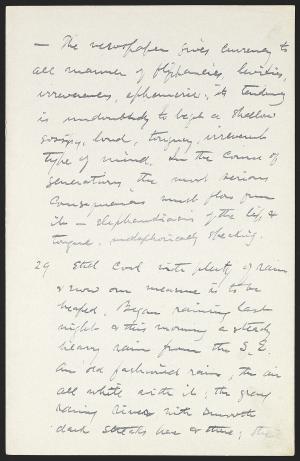 — The newspaper gives currency to
all manner of flippancies, levities,
irreverences, ephemera; its tendency
is undoubtedly to beget a shallow
gossipy, loud, tonguey, irreverent
type of mind. In the course of
generations, the most serious
consequences must flow from
it — elephantiasis of the lip &
tongue, metaphorically speaking.
29 Still cool with plenty of rain
& now our measure is to be
heaped. Began raining last
night & this morning a steady
heavy rain from the S.E.
An old fashioned rain, the air
all white with it; the gray
river with smooth
dark streaks here & there; the